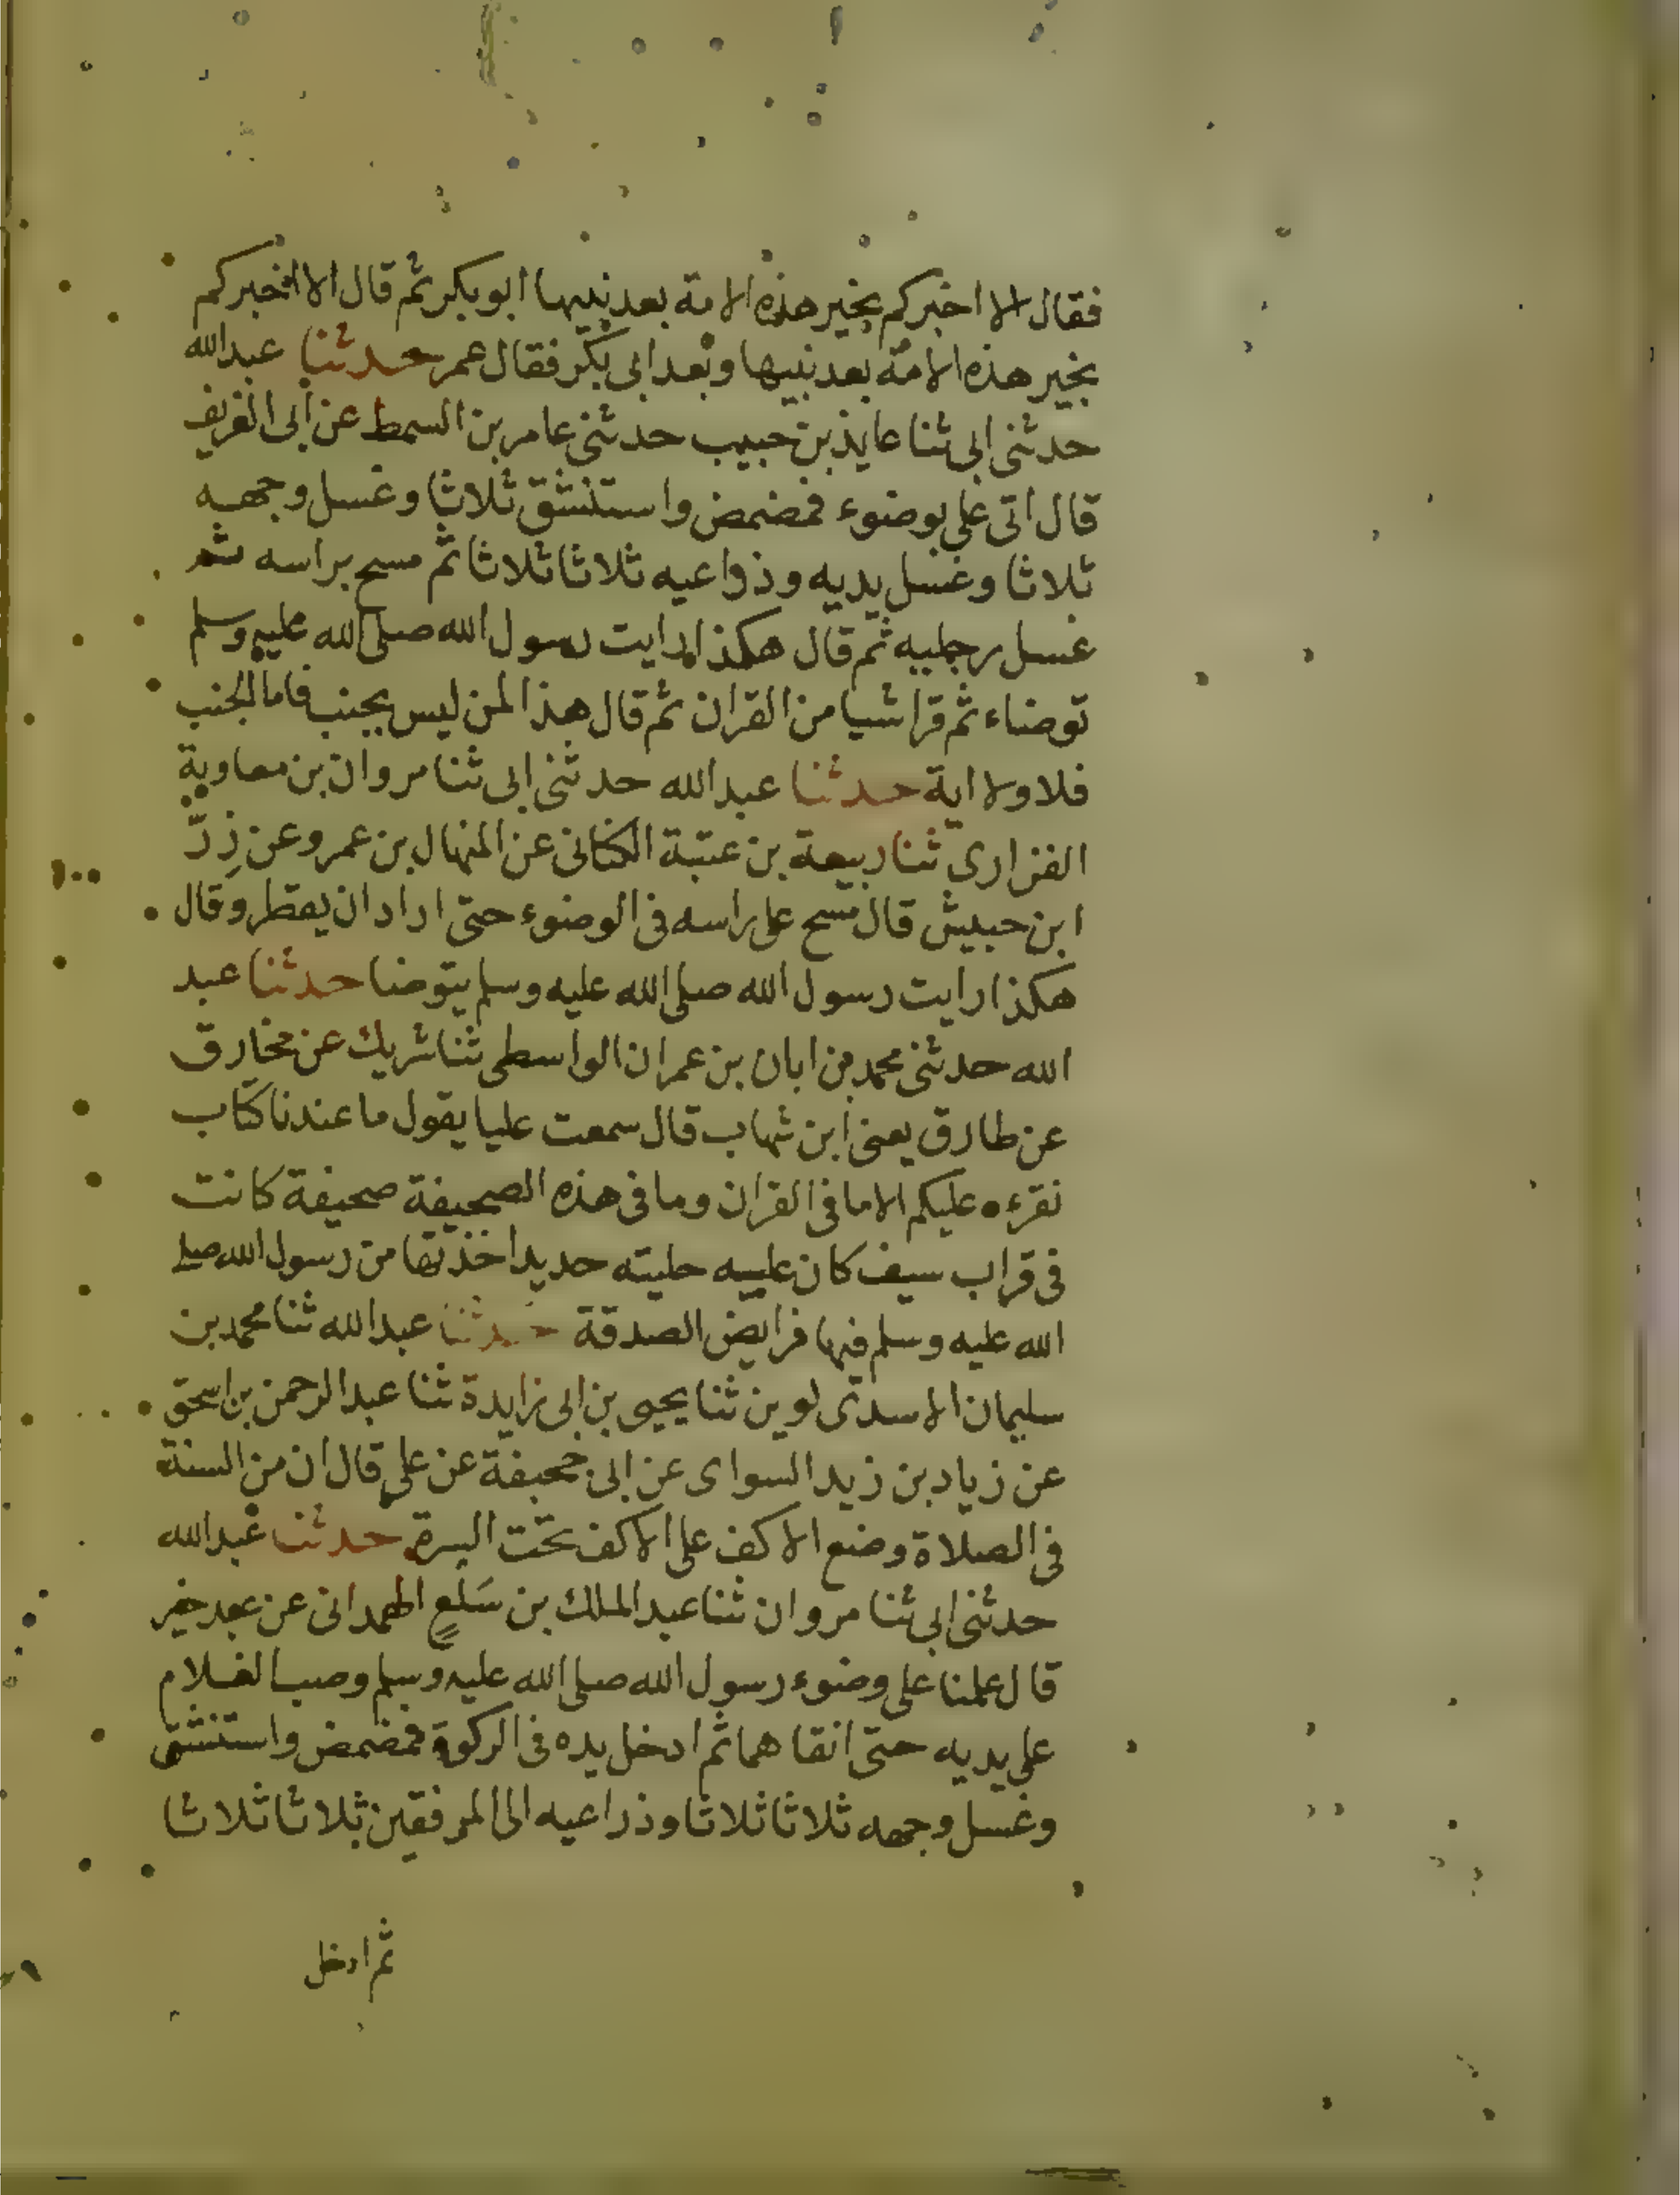 فقال الا اخبركم بخير هذه الامة بعد نبيها ابو بكر ثم قال الا اخبركم
بخير هذه الامة بعد نبيها وبعد ابى بكر فقال عمر حدثنا عبد الله
حدثنى ابى ثنا عايذ بن حبيب حدثنى عامر بن السمط عن ابى الغريف
قال اتى على بوضوء فمضمض واستنشق ثلاثا وغسل وجهه
ثلاثا وغسل يديه وذراعيه ثلاثا ثلاثا ثم مسح براسه ثم
غسل رجليه ثم قال هكذا رايت رسول الله صلى الله عليه وسلم
توضاء ثم قرا شيا من القران ثم قال هذا لمن ليس بجنب فاما الجنب
فلا ولا اية حدثنا عبد الله حدثنى ابى ثنا مروان بن معاوية
الفزارى ثنا ربيعة بن عتبة الكنانى عن المنهال بن عمرو عن زِرّ
ابن حبيش قال مسح على راسه فى الوضوء حتى اراد ان يقطر وقال
هكذا رايت رسول الله صلى الله عليه وسلم يتوضا حدثنا عبد
الله حدثنى محمد بن ابان بن عمران الواسطى ثنا شريك عن مخارق
عن طارق يعنى ابن شهاب قال سمعت عليا يقول ما عندنا كتاب
نقرءه عليكم الا ما فى القران وما فى هذه الصحيفة صحيفة كانت
فى قراب سيف كان عليه حليته حديد اخذتها من رسول الله صلى
الله عليه وسلم فيها فرايض الصدقة حدثنا عبد الله ثنا محمد بن
سليمان الاسدى لوين ثنا يحيى بن ابى زايدة ثنا عبد الرحمن بن اسحق
عن زياد بن زيد السواى عن ابى جحيفة عن على قال ان من السنة
فى الصلاة وضع الاكف على الاكف تحت السرة حدثنا عبد الله
حدثنى ابى ثنا مروان ثنا عبد الملك بن سَلْعٍ الهمدانى عن عبد خير
قال علمنا على وضوء رسول الله صلى الله عليه وسلم وصب الغلام
على يديه حتى انقاهما ثم ادخل يده فى الركوة فمضمض واستنشق
وغسل وجهه ثلاثا ثلاثا وذراعيه الى المرفقين ثلاثا ثلاثا
ثم ادخل